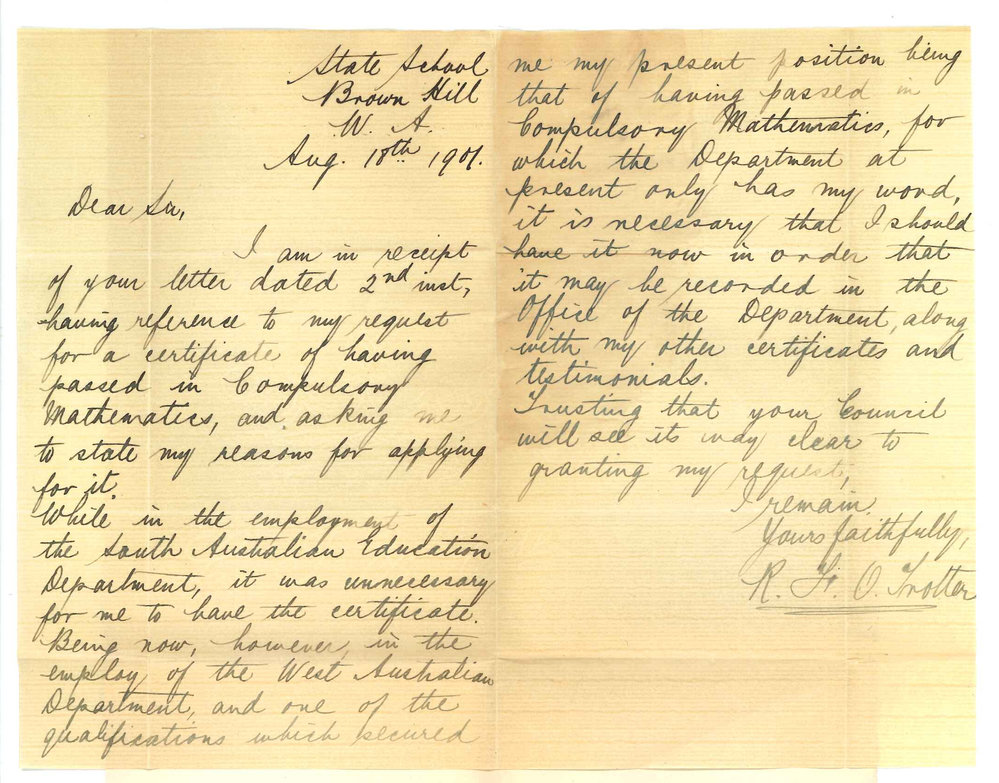 State School
Brown Hill
W. A.
Aug. 18th 1901.
Dear Sir,
I am in receipt
of your letter dated 2nd inst,
having reference to my request
for a certificate of having
passed in Compulsory
Mathematics, and asking me
to state my reasons for applying
for it.
While in the employment of
the South Australian Education
Department, it was unnecessary
for me to have the certificate.
Being now, however, in the
employ of the West Australian
Department, and one of the
qualifications which secured
me my present position being
that of having passed in
Compulsory Mathematics, for
which the Department at
present only has my word,
it is necessary that I should
have it now in order that
it may be recorded in the
Office of the Department, along
with my other certificates and
testimonials.
Trusting that your Council
will see its way clear to
granting my request,
I remain
Yours faithfully,
R. O. Trotter